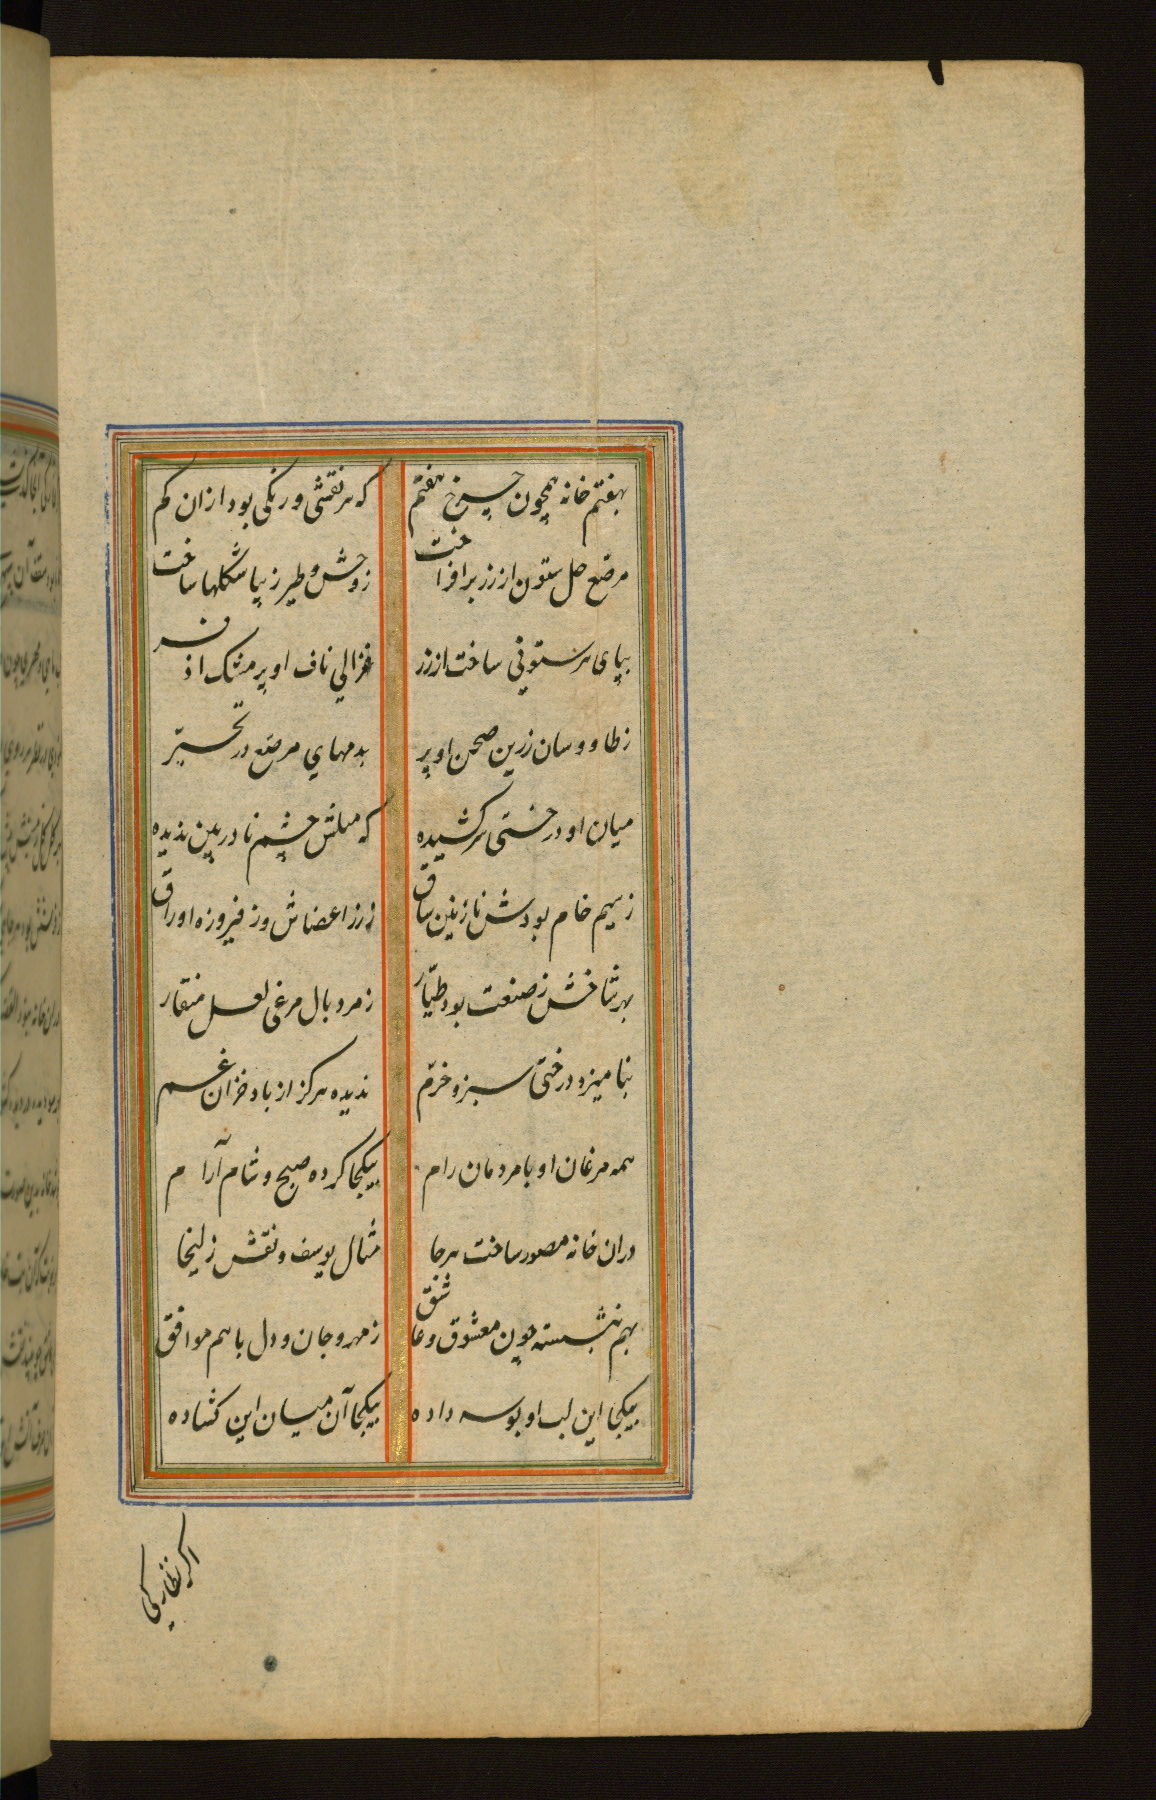 بهفتم خانه همچون چرخ هفتم که هر نقشی و رنکی بود ازان کم
مرصع چل ستون از زر برافراخت ز وحش و طیر زیبا شکلها ساخت
بپای هر ستونی ساخت از زر غزالی ناف او پر مشک اذفر
ز طاووسان زرین صحن او پر بدمهای مرصع در تحیّر
میان او درختی سر کشیده که مثلش چشم نادربین ندیده
ز سیم خام بودش نازنین ساق ز زر اعضاش وز فیروزه اوراق
بهر شاخش ز صنعت بود طیّار زمرد بال مرغی لعل منقار
بنامیزد درختی سبز و خرّم ندیده هرکز از باد خزان غم
همه مرغان او با مردمان رام بیکجا کرده صبح و شام آرام
دران خانه مصور ساخت هرجا مثال یوسف و نقش زلیخا
بهم بنشسته چون معشوق و عاشق ز مهر و جان و دل باهم موافق
بیکجا این لب او بوسه داده بیکجا آن میان این کشاده
اکر نظارکی